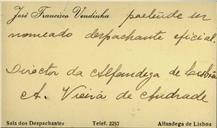 José Francisco Vendinha pretende ser
nomeado despachante oficial.
Director da Alfandega de Lisboa
A. Vieira de Andrade
Sala dos Despachantes Telef. 2257 Alfandega de Lisboa